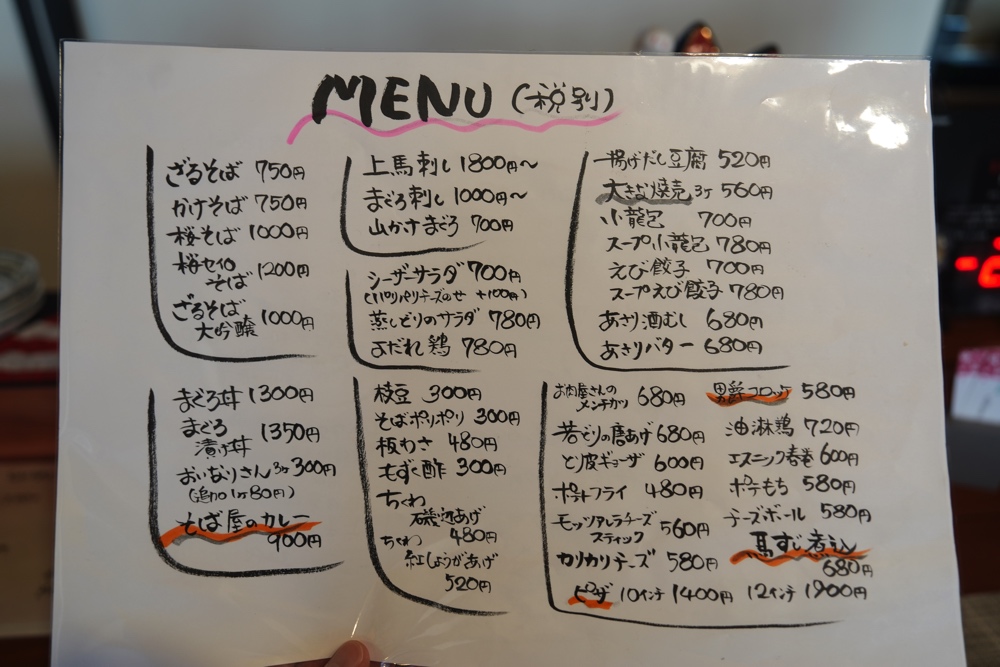 MENU (税別)
ざるそば 750円
かけそば 750円
桜そば 1000円
桜セイロ
そば 1200円
ざるそば
大吟醸 1000円
上馬刺し 1800円〜
まぐろ刺し 1000円〜
山かけまぐろ 700円
シーザーサラダ 700円
(パリパリチーズのせ +100円)
蒸しどりのサラダ 780円
よだれ鶏 780円
揚げだし豆腐 520円
大きな焼売 3ケ 560円
小龍包 700円
スープ小龍包 780円
えび餃子 700円
スープえび餃子 780円
あさり酒むし 680円
あさりバター 680円
まぐろ丼 1300円
まぐろ
漬け丼 1350円
おいなりさん 3ケ 300円
(追加1ケ80円)
そば屋のカレー
900円
枝豆 300円
そばポリポリ 300円
板わさ 480円
もずく酢 300円
ちくわ
磯辺あげ
480円
ちくわ
紅しょうがあげ
520円
お肉屋さんの
メンチカツ 680円
若どりの唐あげ 680円
とり皮ギョーザ 600円
ポテトフライ 480円
モッツァレラチーズ
スティック 560円
カリカリチーズ 580円
男爵コロッケ 580円
油淋鶏 720円
エスニック春巻 600円
ポテもち 580円
チーズボール 580円
馬すじ煮込
680円
ピザ 10インチ 1400円 12インチ 1900円